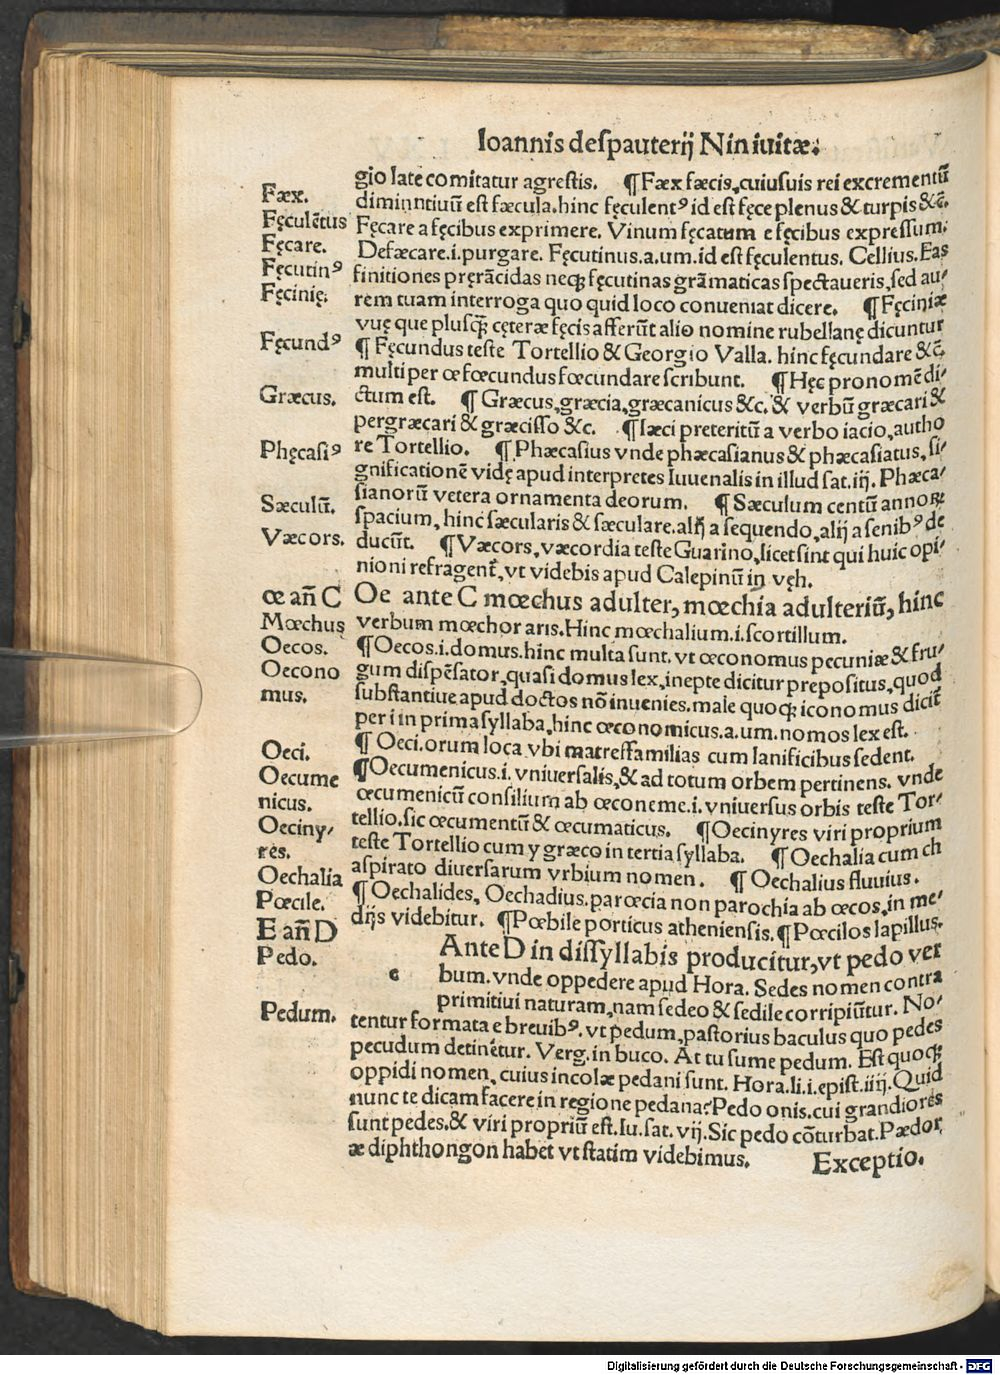 Ioannis despauterij Niniuitæ:
gio late comitatur agrestis. ¶ Fæx fæcis, cuiusuis rei excrementū
Fæx.
diminntiuū est fæcula. hinc fęculentꝰ id est fęce plenus & turpis &c̄.
Fęculētus
Fęcare a fęcibus exprimere. Vinum fęcatum e fęcibus expressum:
Fęcare.
Defæcare .i. purgare. Fęcutinus .a. um. id est fęculentus. Cellius. Eas
Fęcutinꝰ
finitiones pręrācidas neqꝫ fęcutinas grāmaticas spectaueris, sed au⸗
Fęcinię:
rem tuam interroga quo quid loco conueniat dicere. ¶ Fęciniæ
vuę que plusqꝫ cęteræ fęcis afferūt alio nomine rubellanę dicuntur
Fęcundꝰ
¶ Fęcundus teste Tortellio & Georgio Valla. hinc fęcundare &c̄.
multi per œ fœcundus fœcundare scribunt. ¶ Hęc pronomē di⸗
Græcus.
ctum est. ¶ Græcus, græcia, græcanicus &c. & verbū græcari &
pergræcari & græcisso &c. ¶ Iæci preteritū a verbo iacio, autho
Phęcasiꝰ
re Tortellio. ¶ Phæcasius vnde phæcasianus & phæcasiatus, si⸗
gnificationē vidę apud interpretes Iuuenalis in illud sat. iij. Phæca⸗
sianorū vetera ornamenta deorum. ¶ Sæculum centū annoꝝ
Sæculū.
spacium, hinc sæcularis & sæculare. alij a sequendo, alij a senibꝰ de
Væcors.
ducūt. ¶ Væcors, væcordia teste Guarino, licet sint qui huic opi⸗
nioni refragent̄, vt videbis apud Calepinū in vęh.
œ añ C Oe ante C mœchus adulter, mœchia adulteriū, hinc
Mœchus verbum mœchor aris. Hinc mœchalium .i. scortillum.
Oecos. ¶ Oecos .i. domus. hinc multa sunt. vt œconomus pecuniæ & fru⸗
Oecono gum dispēsator, quasi domus lex, inepte dicitur prepositus, quod
mus. substantiue apud doctos nō inuenies. male quoqꝫ iconomus dicit̄
per i in prima syllaba, hinc œconomicus .a. um. nomos lex est.
Oeci. ¶ Oeci. orum loca vbi matresfamilias cum lanificibus sedent.
Oecume ¶ Oecumenicus .i. vniuersalis, & ad totum orbem pertinens. vnde
nicus. œcumenicū consilium ab œconeme .i. vniuersus orbis teste Tor⸗
Oeciny⸗ tellio. sic œcumentū & œcumaticus. ¶ Oecinyres viri proprium
res. teste Tortellio cum y græco in tertia syllaba. ¶ Oechalia cum ch
Oechalia aspirato diuersarum vrbium nomen. ¶ Oechalius fluuius.
Pœcile. ¶ Oechalides, Oechadius. parœcia non parochia ab œcos, in me⸗
E añ D dijs videbitur. ¶ Pœbile porticus atheniensis. ¶ Pœcilos lapillus.
Pedo. Ante D in dissyllabis producitur, vt pedo ver
e bum. vnde oppedere apud Hora. Sedes nomen contra
primitiui naturam, nam sedeo & sedile corripiūtur. No⸗
Pedum. tentur formata e breuibꝰ. vt pedum, pastorius baculus quo pedes
pecudum detinētur. Verg. in buco. At tu sume pedum. Est quoqꝫ
oppidi nomen, cuius incolæ pedani sunt. Hora. li. i. epist. iiij. Quid
nunc te dicam facere in regione pedana? Pedo onis. cui grandiores
sunt pedes. & viri propriū est. Iu. sat. vij. Sic pedo cōturbat. Pædor
æ diphthongon habet vt statim videbimus. Exceptio.
Digitalisierung gefördert durch die Deutsche Forschungsgemeinschaft - DFG